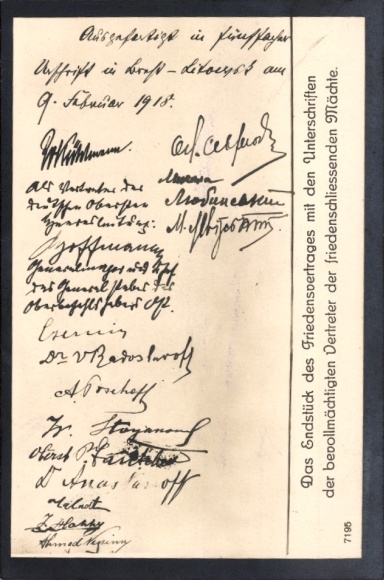 Ausgefertigt in fünffacher
Urschrift in Brest-Litowsk am
9. Februar 1918.
Kühlmann.
Als Vertreter der
deutschen Obersten
Heeresleitung:
Hoffmann
Generalmajor und Chef
des Generalstabes des
Oberbefehlshabers Ost.
Czernin
Dr V Radoslavoff
A. Toscheff
Stoyanow
Oberst
Dr Anastassoff
Ahmed
Ол. Севрюк
Микола
Любинський
М. Левитський
Das Endstück des Friedensvertrages mit den Unterschriften
der bevollmächtigten Vertreter der friedenschliessenden Mächte.
7195